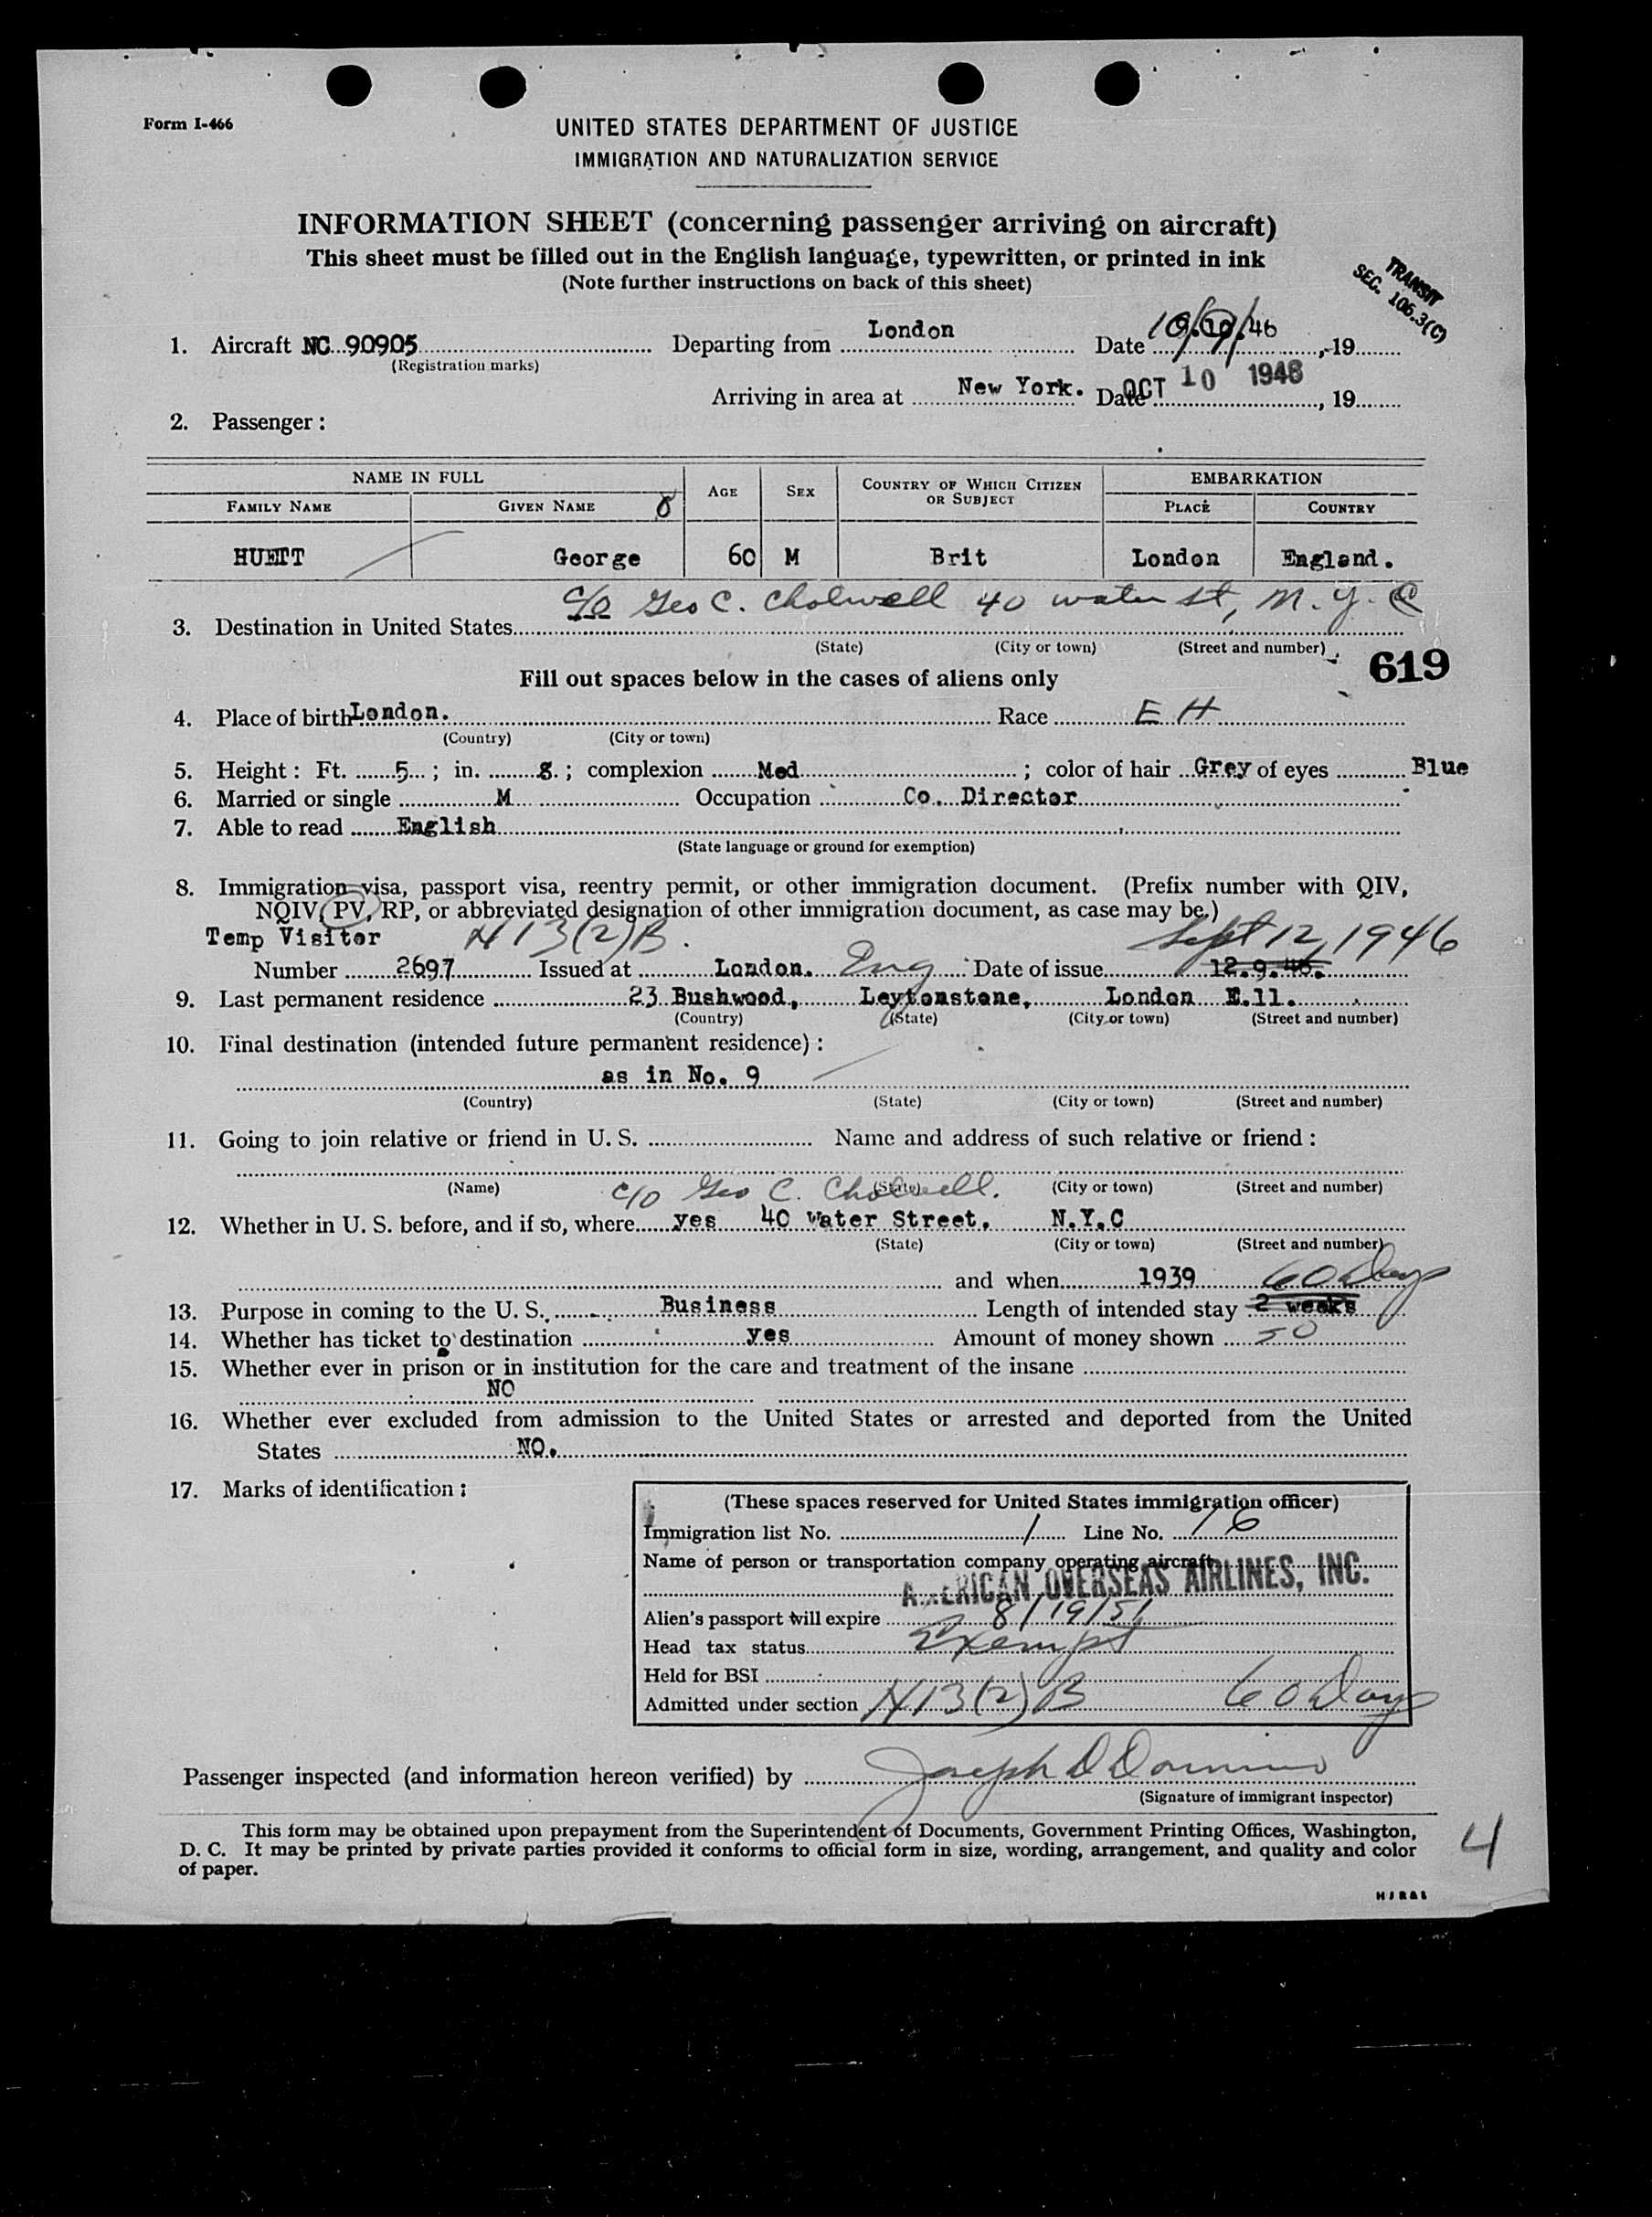 Form I-466
UNITED STATES DEPARTMENT OF JUSTICE
IMMIGRATION AND NATURALIZATION SERVICE
INFORMATION SHEET (concerning passenger arriving on aircraft)
This sheet must be filled out in the English language, typewritten, or printed in ink
(Note further instructions on back of this sheet)
TRANSIT
SEC. 106.3(C)
1. Aircraft NC 90905 Departing from London Date 46, 19
(Registration marks)
Arriving in area at New York. Date OCT 10 1946, 19
2. Passenger :
NAME IN FULL AGE SEX COUNTRY OF WHICH CITIZEN OR SUBJECT EMBARKATION
FAMILY NAME GIVEN NAME PLACE COUNTRY
HUETT George 60 M Brit London England.
c/o Geo C. Cholwell 40 water st, N.Y.C
3. Destination in United States
(State) (City or town) (Street and number)
619
Fill out spaces below in the cases of aliens only
4. Place of birth London. Race E H
(Country) (City or town)
5. Height : Ft. 5 ; in. 8. ; complexion Med ; color of hair Grey of eyes Blue
6. Married or single M Occupation Co. Director
7. Able to read English
(State language or ground for exemption)
8. Immigration visa, passport visa, reentry permit, or other immigration document. (Prefix number with QIV,
NQIV, PV, RP, or abbreviated designation of other immigration document, as case may be.)
Temp Visitor 13(2)B. Sept 12, 1946
Number 2697 Issued at London. Eng Date of issue 12.9.46.
9. Last permanent residence 23 Bushwood, Leytonstone, London E.11.
(Country) (State) (City or town) (Street and number)
10. Final destination (intended future permanent residence) :
as in No. 9
(Country) (State) (City or town) (Street and number)
11. Going to join relative or friend in U. S. Name and address of such relative or friend :
(Name) (State) (City or town) (Street and number)
c/o Geo C. Cholwell.
12. Whether in U. S. before, and if so, where yes 40 Water Street. N.Y.C
(State) (City or town) (Street and number)
and when 1939 60 Days
13. Purpose in coming to the U. S. Business Length of intended stay 2 weeks
14. Whether has ticket to destination yes Amount of money shown 50
15. Whether ever in prison or in institution for the care and treatment of the insane
NO
16. Whether ever excluded from admission to the United States or arrested and deported from the United
States NO.
17. Marks of identification :
(These spaces reserved for United States immigration officer)
Immigration list No. 1 Line No. 16
Name of person or transportation company operating aircraft
AMERICAN OVERSEAS AIRLINES, INC.
Alien's passport will expire 8/19/51
Head tax status Exempt
Held for BSI
Admitted under section 13(2)B 60 Days
Passenger inspected (and information hereon verified) by Joseph D
(Signature of immigrant inspector)
This form may be obtained upon prepayment from the Superintendent of Documents, Government Printing Offices, Washington,
D. C. It may be printed by private parties provided it conforms to official form in size, wording, arrangement, and quality and color
of paper.
4